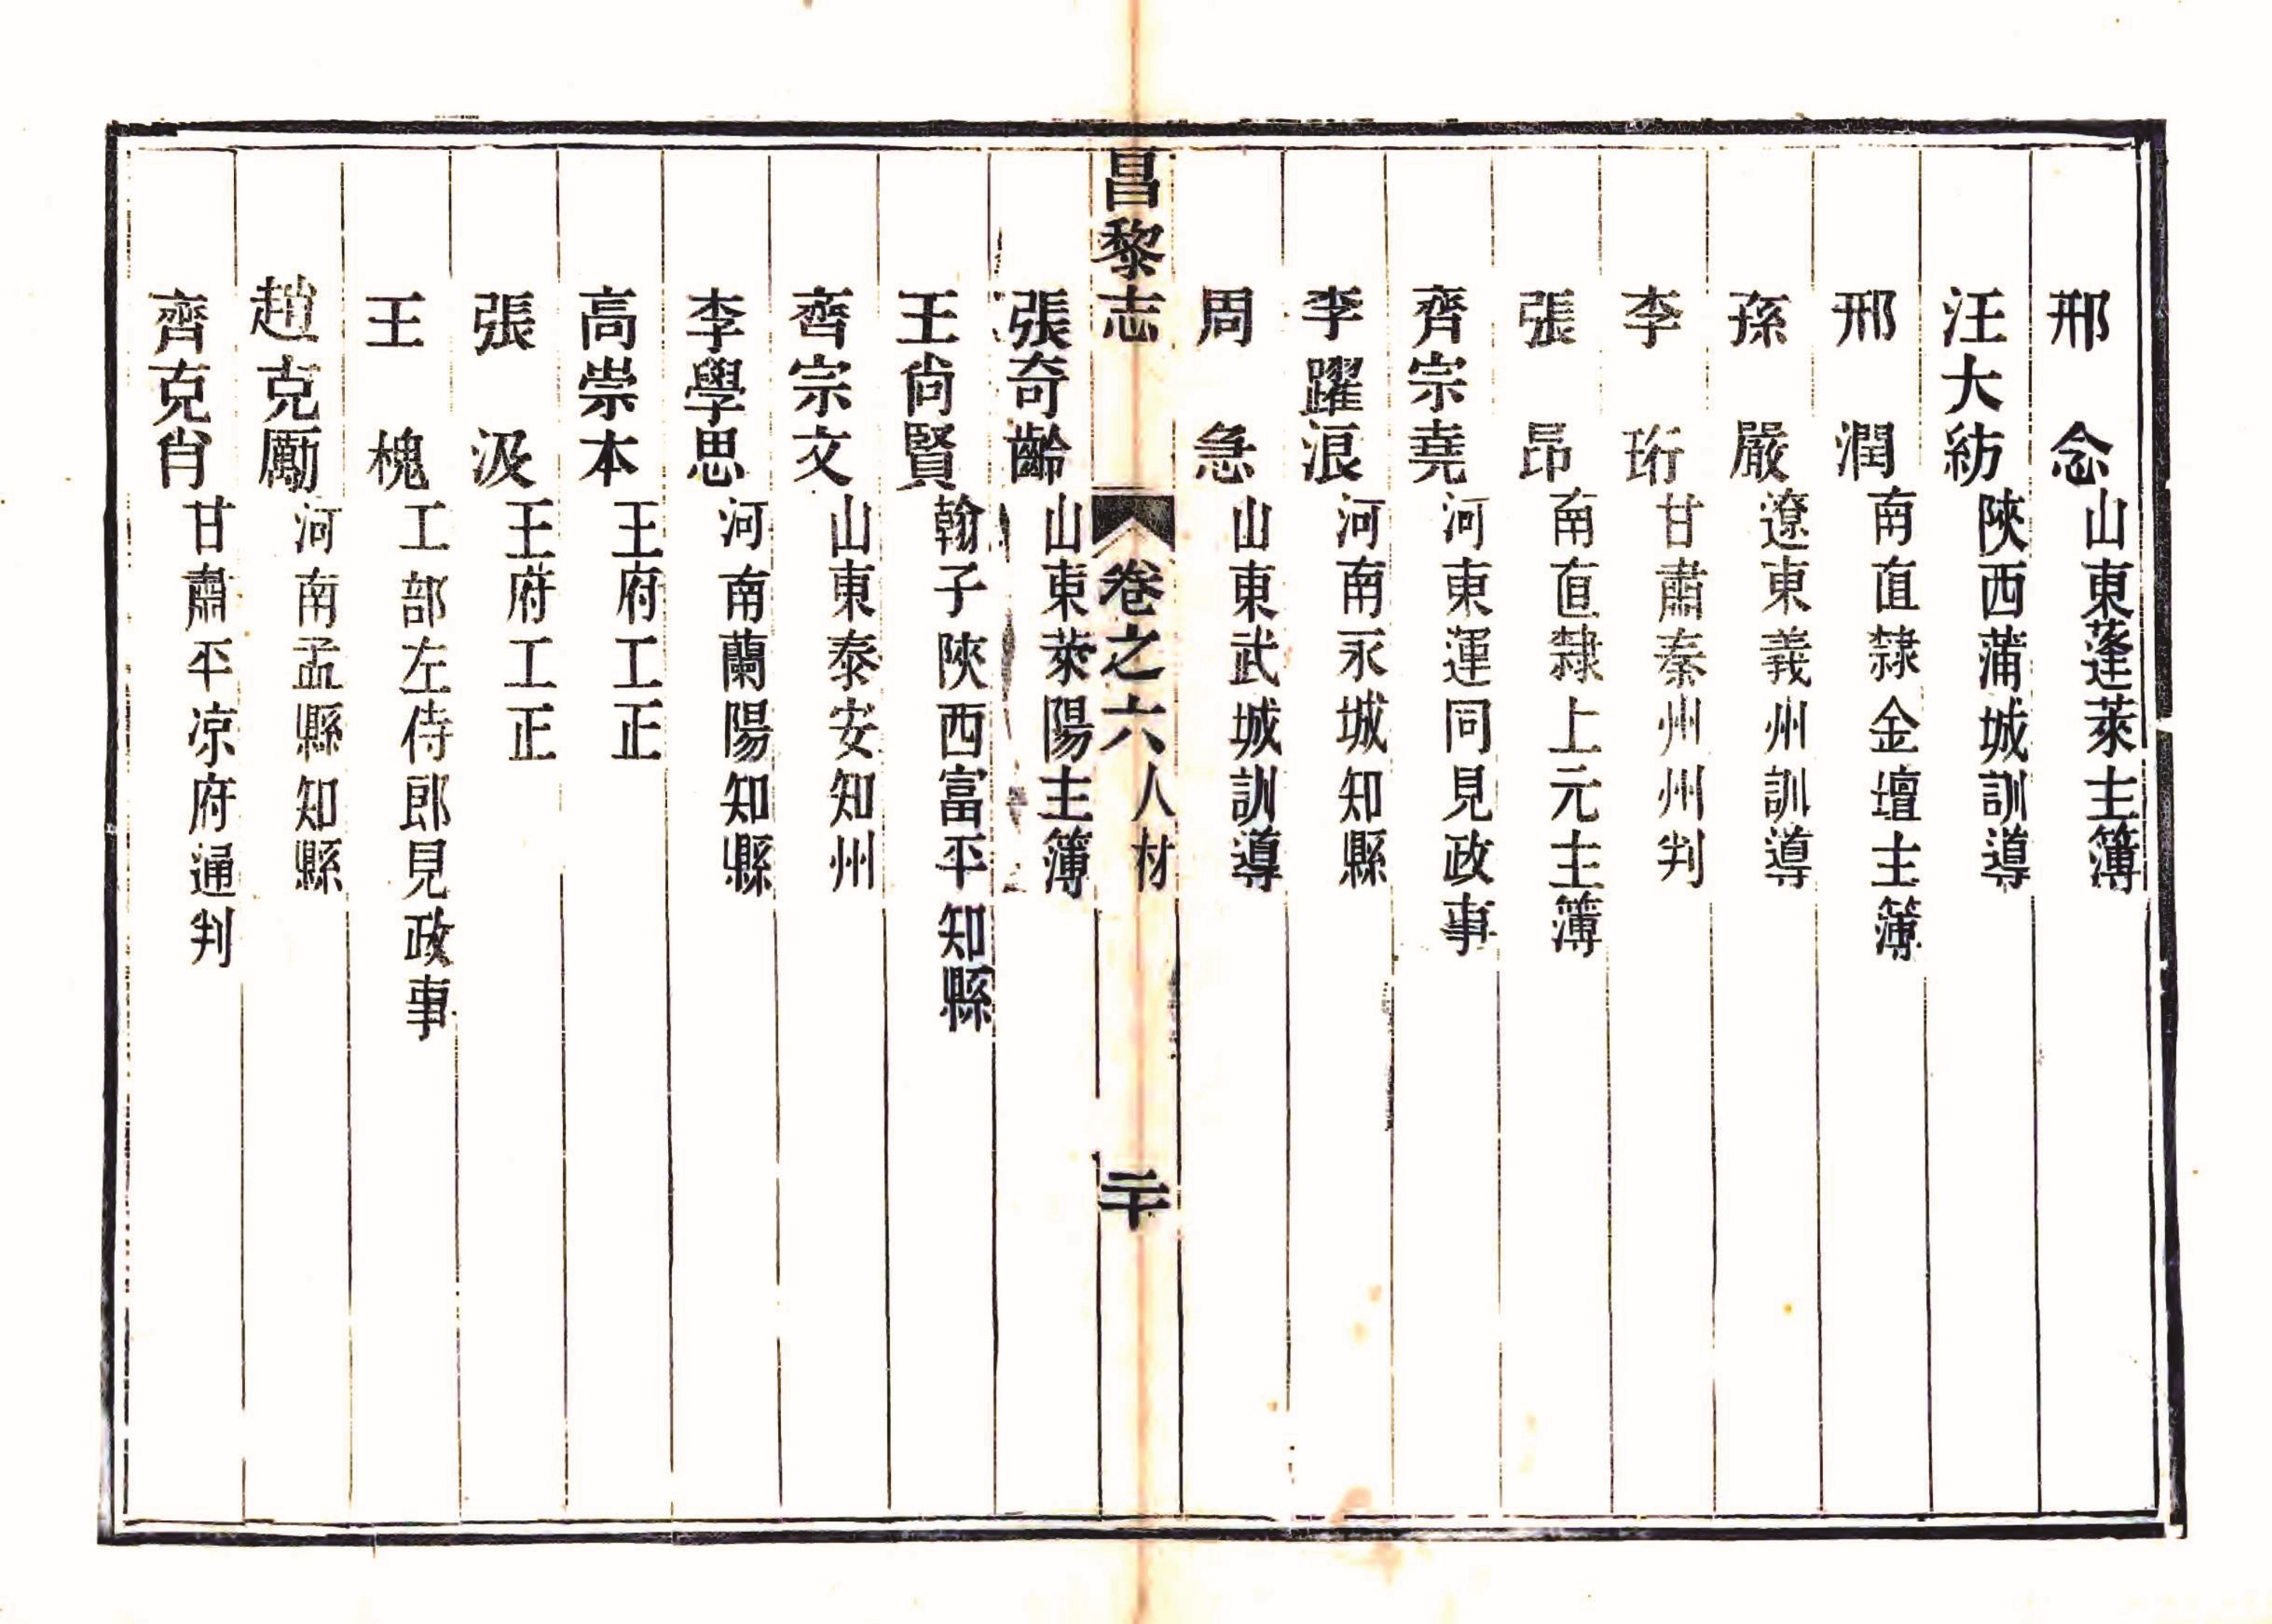 邢念山東蓬萊主簿
汪大紡陝西蒲城訓導
邢潤南直隸金壇主簿
孫嚴遼東義州訓導
李珩甘肅秦州州判
張昂南直隸上元主簿
齊宗堯河東運同見政事
李躍浪河南永城知縣
周急山東武城訓導
昌黎志 卷之六人材 二十
張奇齡山東萊陽主簿
王尙賢翰子陝西富平知縣
齊宗文山東泰安知州
李學思河南蘭陽知縣
高崇本王府工正
張汲王府工正
王槐工部左侍郎見政事
趙克勵河南孟縣知縣
齊克肖甘肅平凉府通判